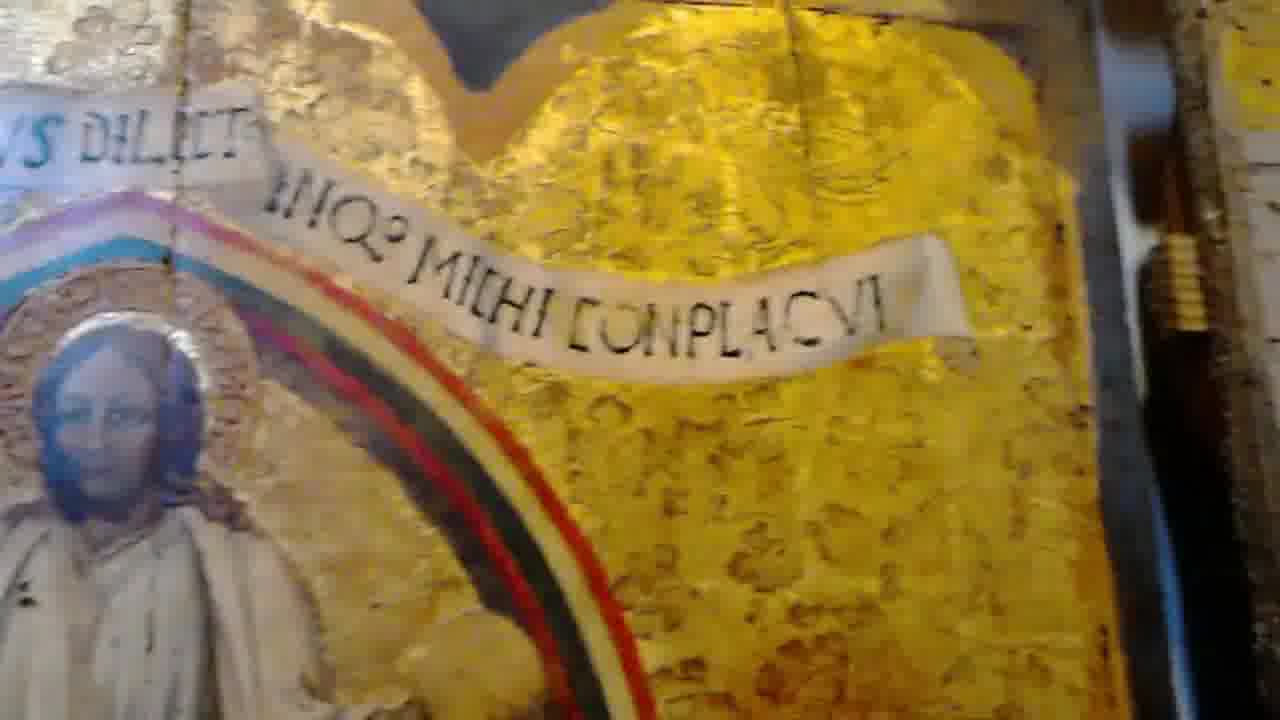 VS DILECT INQ? MICHI CONPLACVI